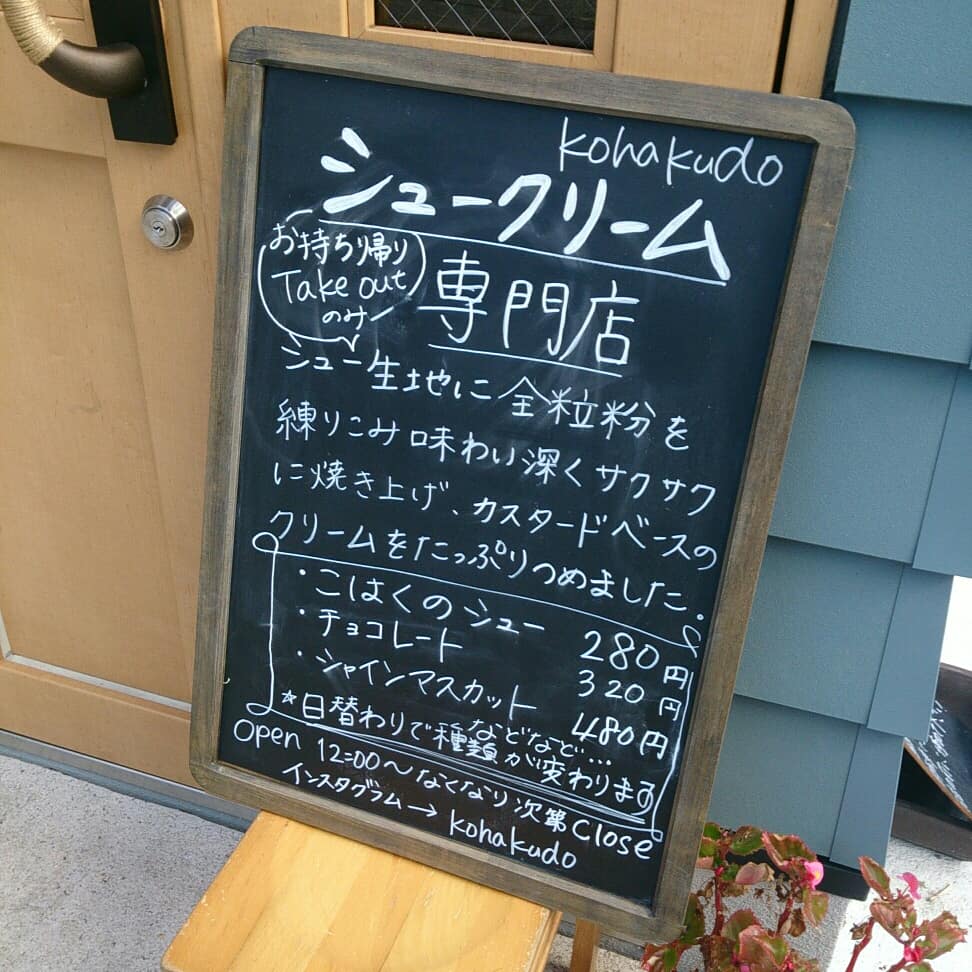 kohakudo
シュークリーム
専門店
お持ち帰り
Take out
のみ
シュー生地に全粒粉を
練りこみ味わい深くサクサク
に焼き上げ、カスタードベースの
クリームをたっぷりつめました。
・こはくのシュー 280円
・チョコレート 320円
・シャインマスカット 480円
などなど...
☆日替わりで種類が変わります
open 12:00～なくなり次第close
インスタグラム→kohakudo